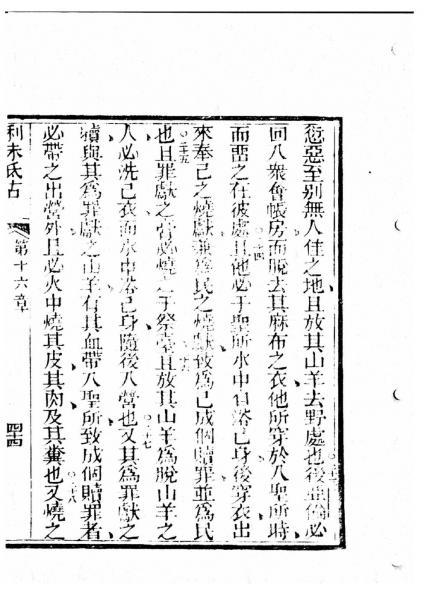 愆惡至别無人住之地且放其山羊去野處也後亞倫必
回入衆會帳房而脫去其麻布之衣他所穿於入聖所時
而畱之在彼處且他必于聖所水中自浴己身後穿衣出
來奉己之燒獻兼為民之燒獻致為己成個贖罪並為民
也且罪獻之膏必燒之于祭臺且放其山羊為脫山羊之
人必洗己衣而水中浴己身隨後入營也又其為罪獻之
犢與其為罪獻之山羊有其血帶入聖所致成個贖罪者
必帶之出營外且必火中燒其皮其肉及其糞也又燒之
利未氏古 第十六章 四十四